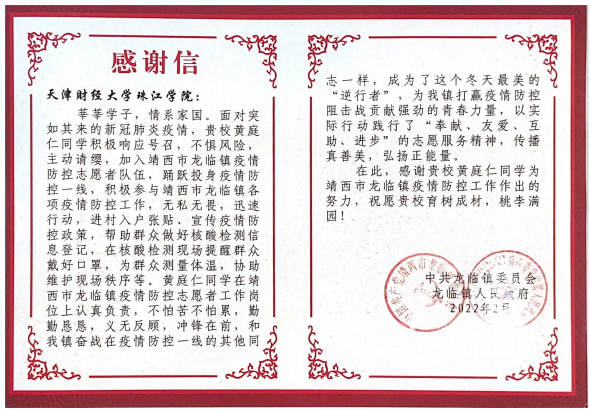 感谢信
天津财经大学珠江学院：
莘莘学子，情系家国。面对突
如其来的新冠肺炎疫情，贵校黄庭
仁同学积极响应号召，不惧风险，
主动请缨，加入靖西市龙临镇疫情
防控志愿者队伍，踊跃投身疫情防
控一线，积极参与靖西市龙临镇各
项疫情防控工作，无私无畏，迅速
行动，进村入户张贴、宣传疫情防
控政策，帮助群众做好核酸检测信
息登记，在核酸检测现场提醒群众
戴好口罩，为群众测量体温，协助
维护现场秩序等。黄庭仁同学在靖
西市龙临镇疫情防控志愿者工作岗
位上认真负责，不怕苦不怕累，勤
勤恳恳，义无反顾，冲锋在前，和
我镇奋战在疫情防控一线的其他同
志一样，成为了这个冬天最美的
“逆行者”，为我镇打赢疫情防控
阻击战贡献强劲的青春力量，以实
际行动践行了“奉献、友爱、互
助、进步”的志愿服务精神，传播
真善美，弘扬正能量。
在此，感谢贵校黄庭仁同学为
靖西市龙临镇疫情防控工作作出的
努力，祝愿贵校育树成材，桃李满
园！
中共龙临镇委员会
龙临镇人民政府
2022年2月